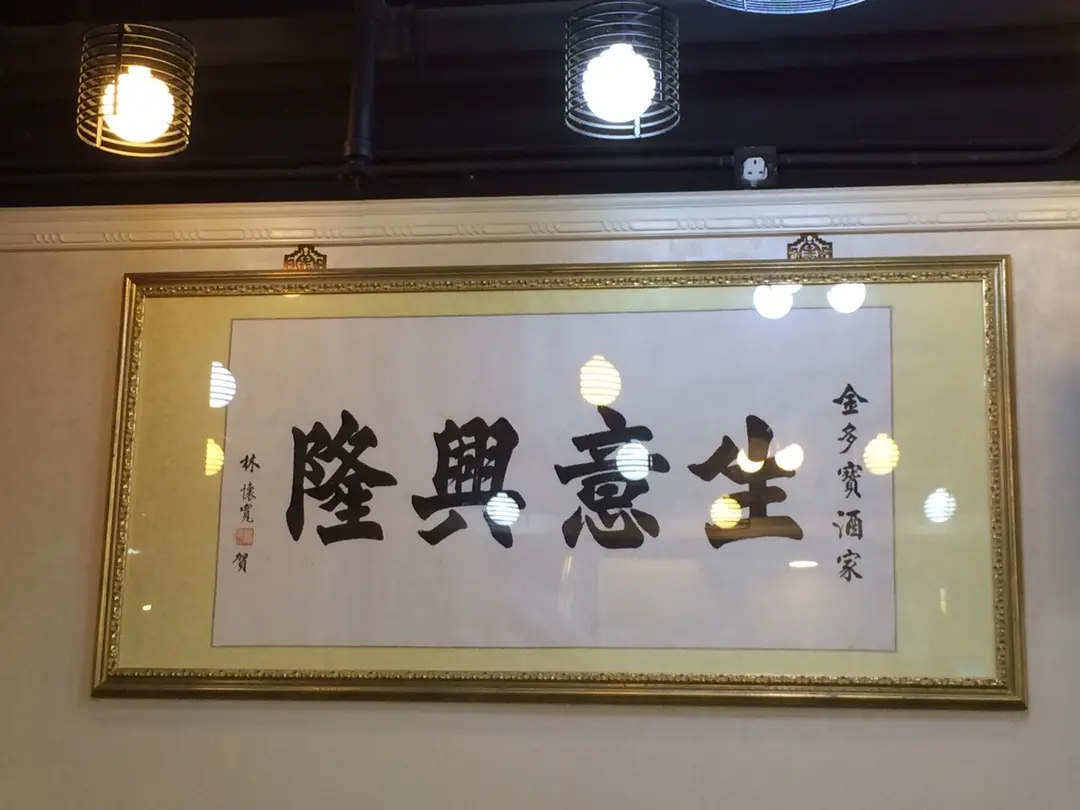 金多寶酒家
生意興隆
林懷寬
賀